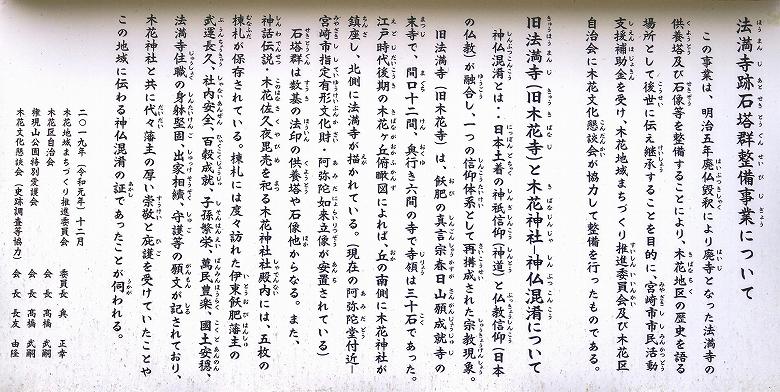 法満寺跡石塔群整備事業について
この事業は、明治五年廃仏毀釈により廃寺となった法満寺の
供養塔及び石像等を整備することにより、木花地区の歴史を語る
場所として後世に伝え継承することを目的に、宮崎市市民活動
支援補助金を受け、木花地域まちづくり推進委員会及び木花区
自治会に木花文化懇談会が協力して整備を行ったものである。
旧法満寺(旧木花寺)と木花神社―神仏混淆について
神仏混淆とは‥日本土着の神祇信仰(神道)と仏教信仰(日本
の仏教)が融合し、一つの信仰体系として再構成された宗教現象。
旧法満寺(旧木花寺)は、飫肥の真言宗春日山願成就寺の
末寺で、間口十二間、奥行き六間の寺で寺領は三十石であった。
江戸時代後期の木花ヶ丘俯瞰図によれば、丘の南側に木花神社が
鎮座し、北側に法満寺が描かれている。(現在の阿弥陀堂付近―
宮崎市指定有形文化財・阿弥陀如来立像が安置されている)
石塔群は数基の法印の供養塔や石像他からなる。また、
神話伝説・木花佐久夜毘売を祀る木花神社社殿内には、五枚の
棟札が保存されている。棟札には度々訪れた伊東飫肥藩主の
武運長久、社内安全、百穀成就、子孫繁栄、萬民豊楽、國土安穏、
法満寺住職の身躰堅固、出家相続、守護等の願文が記されており、
木花神社と共に代々藩主の厚い崇敬と庇護を受けていたことや
この地域に伝わる神仏混淆の証であったことが伺われる。
二〇一九年(令和元年)十二月
木花地域まちづくり推進委員会 委員長 奥 正幸
木花区自治会 会長 高橋 武嗣
権現山公園特別受護会 会長 高橋 武嗣
木花文化懇談会(史跡調査等協力) 会長 長友 由隆